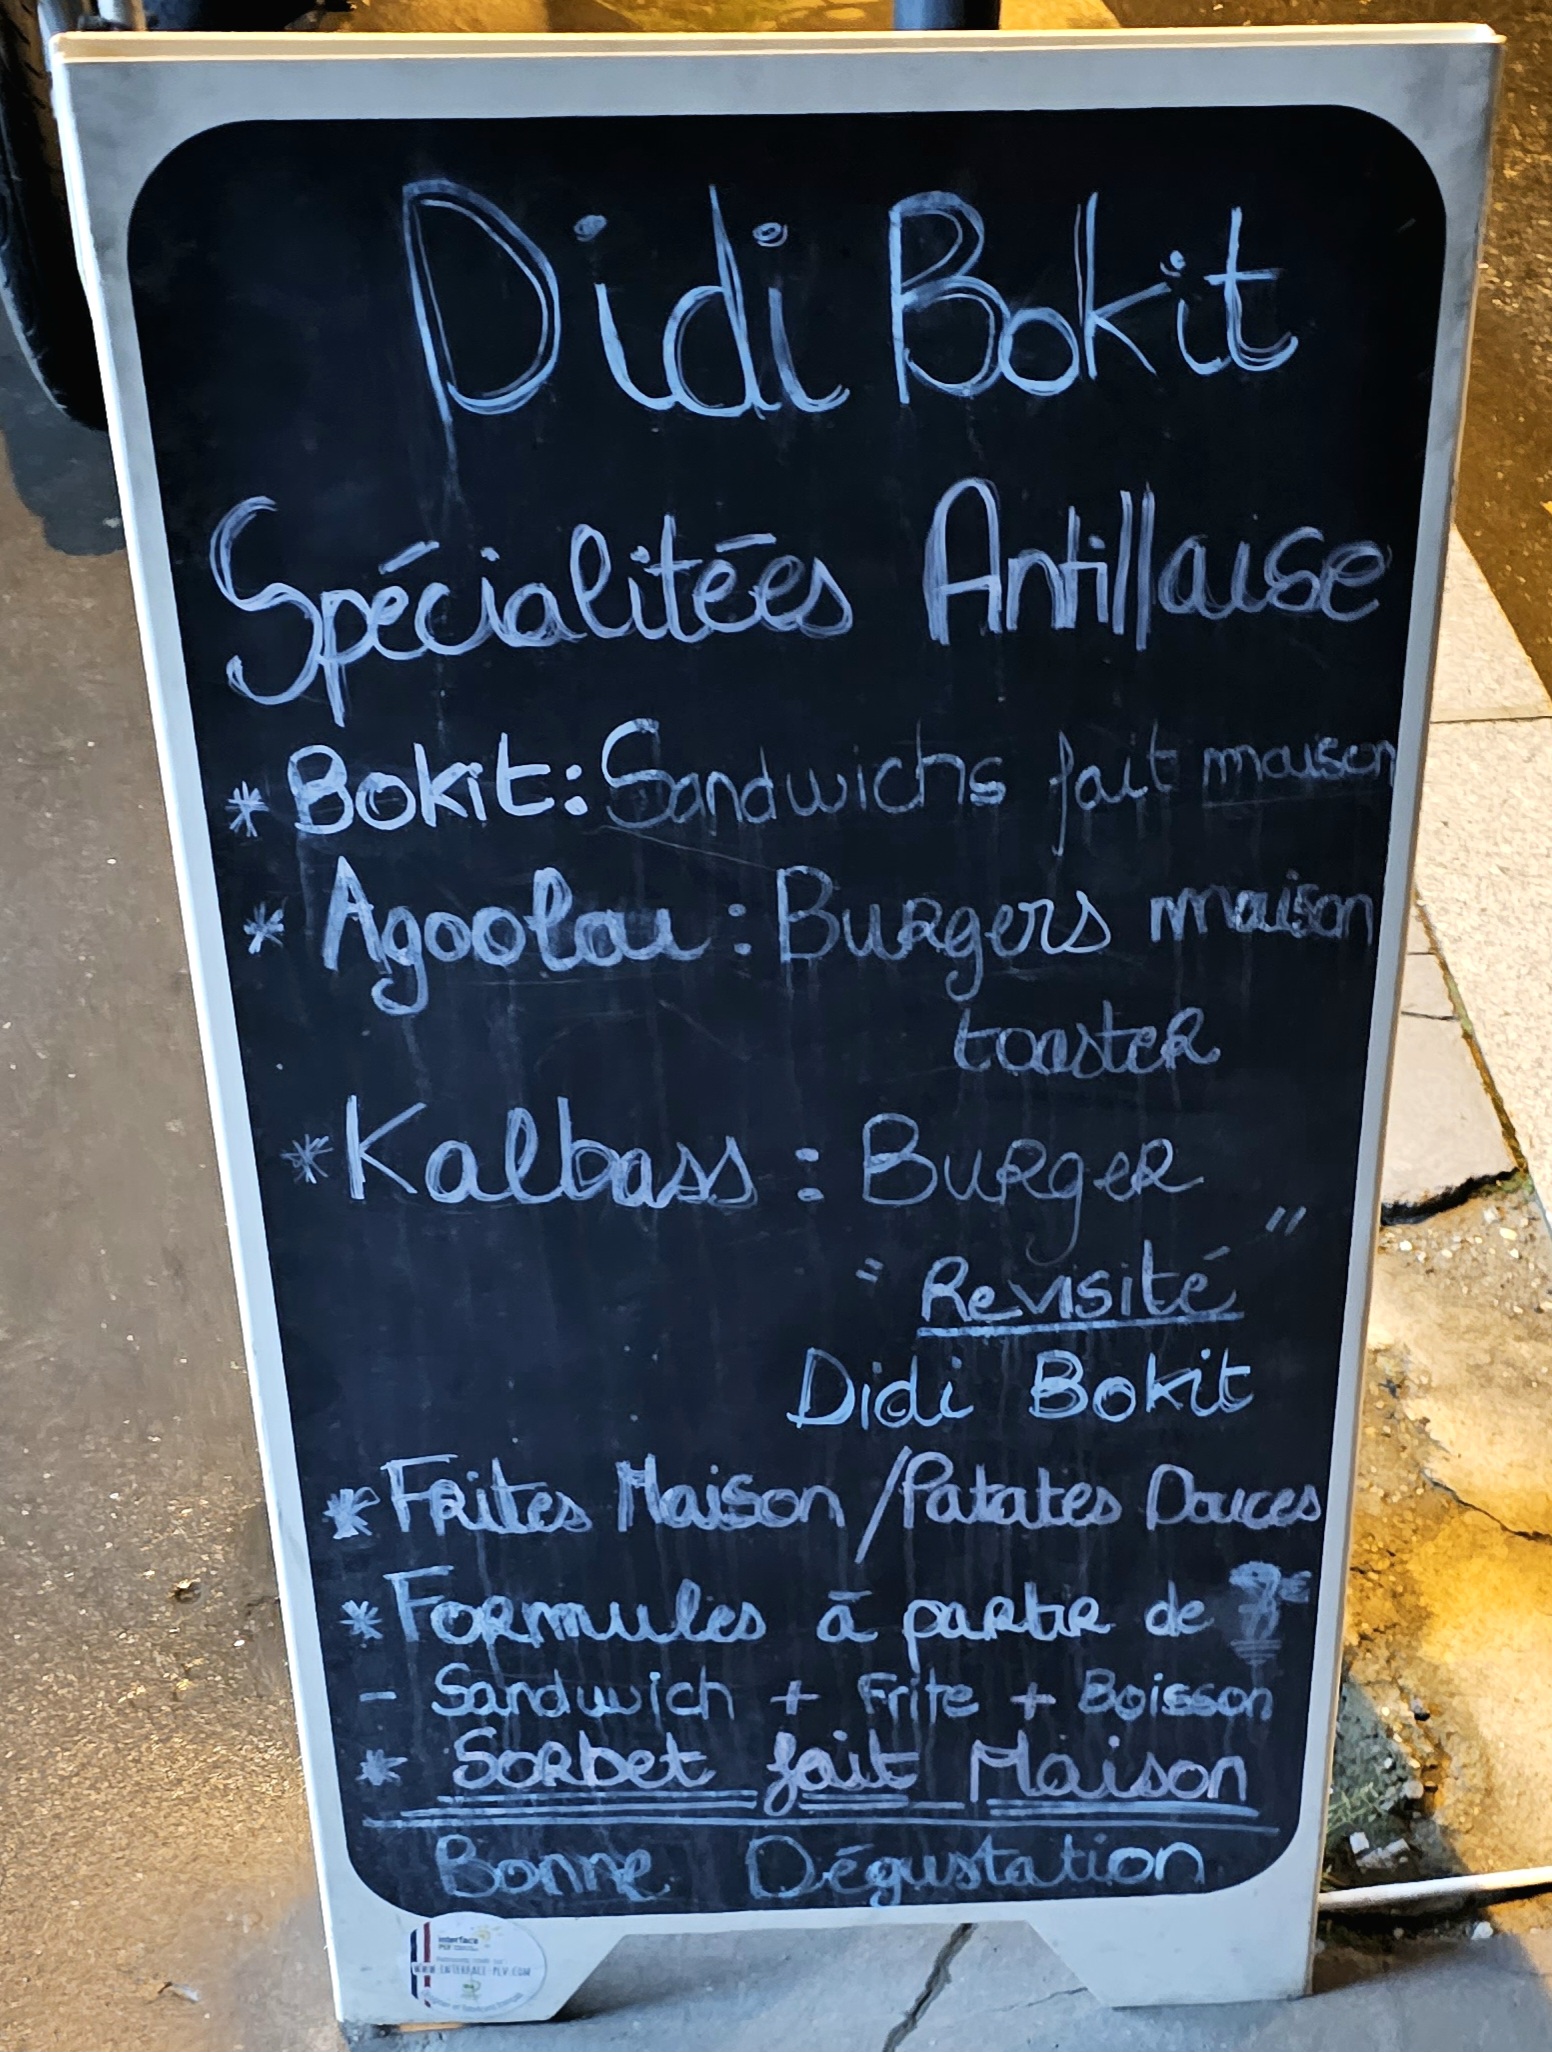 Didi Bokit
Spécialitées Antillaise
* Bokit: Sandwichs fait maison
* Agoolou : Burgers maison
toaster
* Kalbass : Burger
" Revisité "
Didi Bokit
* Frites Maison / Patates Douces
* Formules à partir de
- Sandwich + Frite + Boisson
* Sorbet fait Maison
Bonne Dégustation
interface
PLV
WWW.INTERFACE-PLV.COM